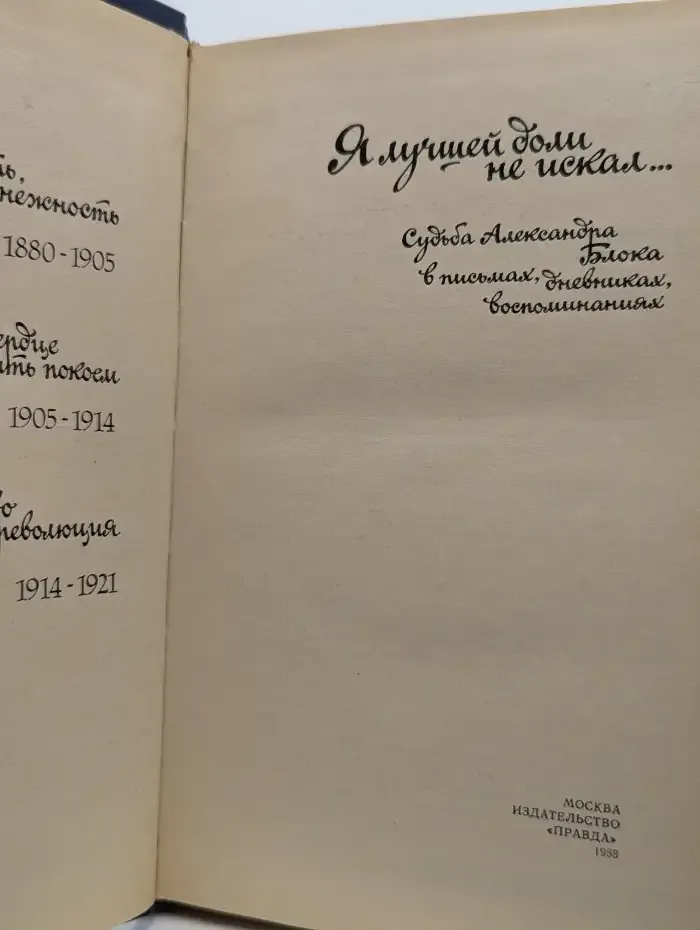 нежность
1880-1905
покоем
1905-1914
революция
1914-1921
Я лучшей доли
не искал...
Судьба Александра
Блока
в письмах, дневниках,
воспоминаниях
МОСКВА
ИЗДАТЕЛЬСТВО
«ПРАВДА»
1988